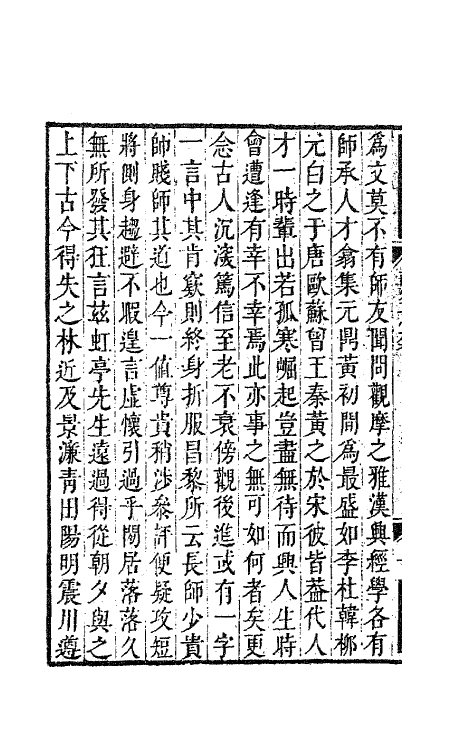 爲文莫不有師友聞問觀摩之雅漢興經學各有
師承人才翕集元鼎黃初間爲最盛如李杜韓柳
元白之于唐歐蘇曾王秦黃之於宋彼皆葢代人
才一時輩出若孤寒崛起豈盡無待而興人生時
會遭逢有幸不幸焉此亦事之無可如何者矣更
念古人沉潛篤信至老不衰傍觀後進或有一字
一言中其肯竅則終身折服昌黎所云長師少貴
師賤師其道也今一値尊貴稍涉叅評便疑攻短
將側身趨避不暇遑言虛懷引過乎閒居落落久
無所發其狂言兹虹亭先生遠過得從朝夕與之
上下古今得失之林近及景濂靑田陽明震川遵